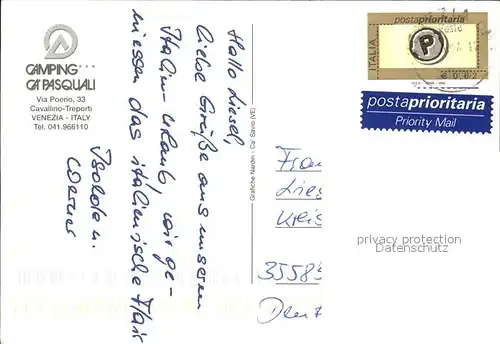 CAMPING
CA'PASQUALI
Via Poerio, 33
Cavallino-Treporti
VENEZIA - ITALY
Tel. 041.966110
Hallo Liesel,
liebe Grüße aus unserem
Italien-Urlaub, wir ge-
niessen das italienische Flair
Isolde u.
Werner
Grafiche Nardin - Ca' Savio (VE)
postaprioritaria
ITALIA
P
€ 0,62
postaprioritaria
Priority Mail
Frau
Lies
Kreis
35585
privacy protection
Datenschutz